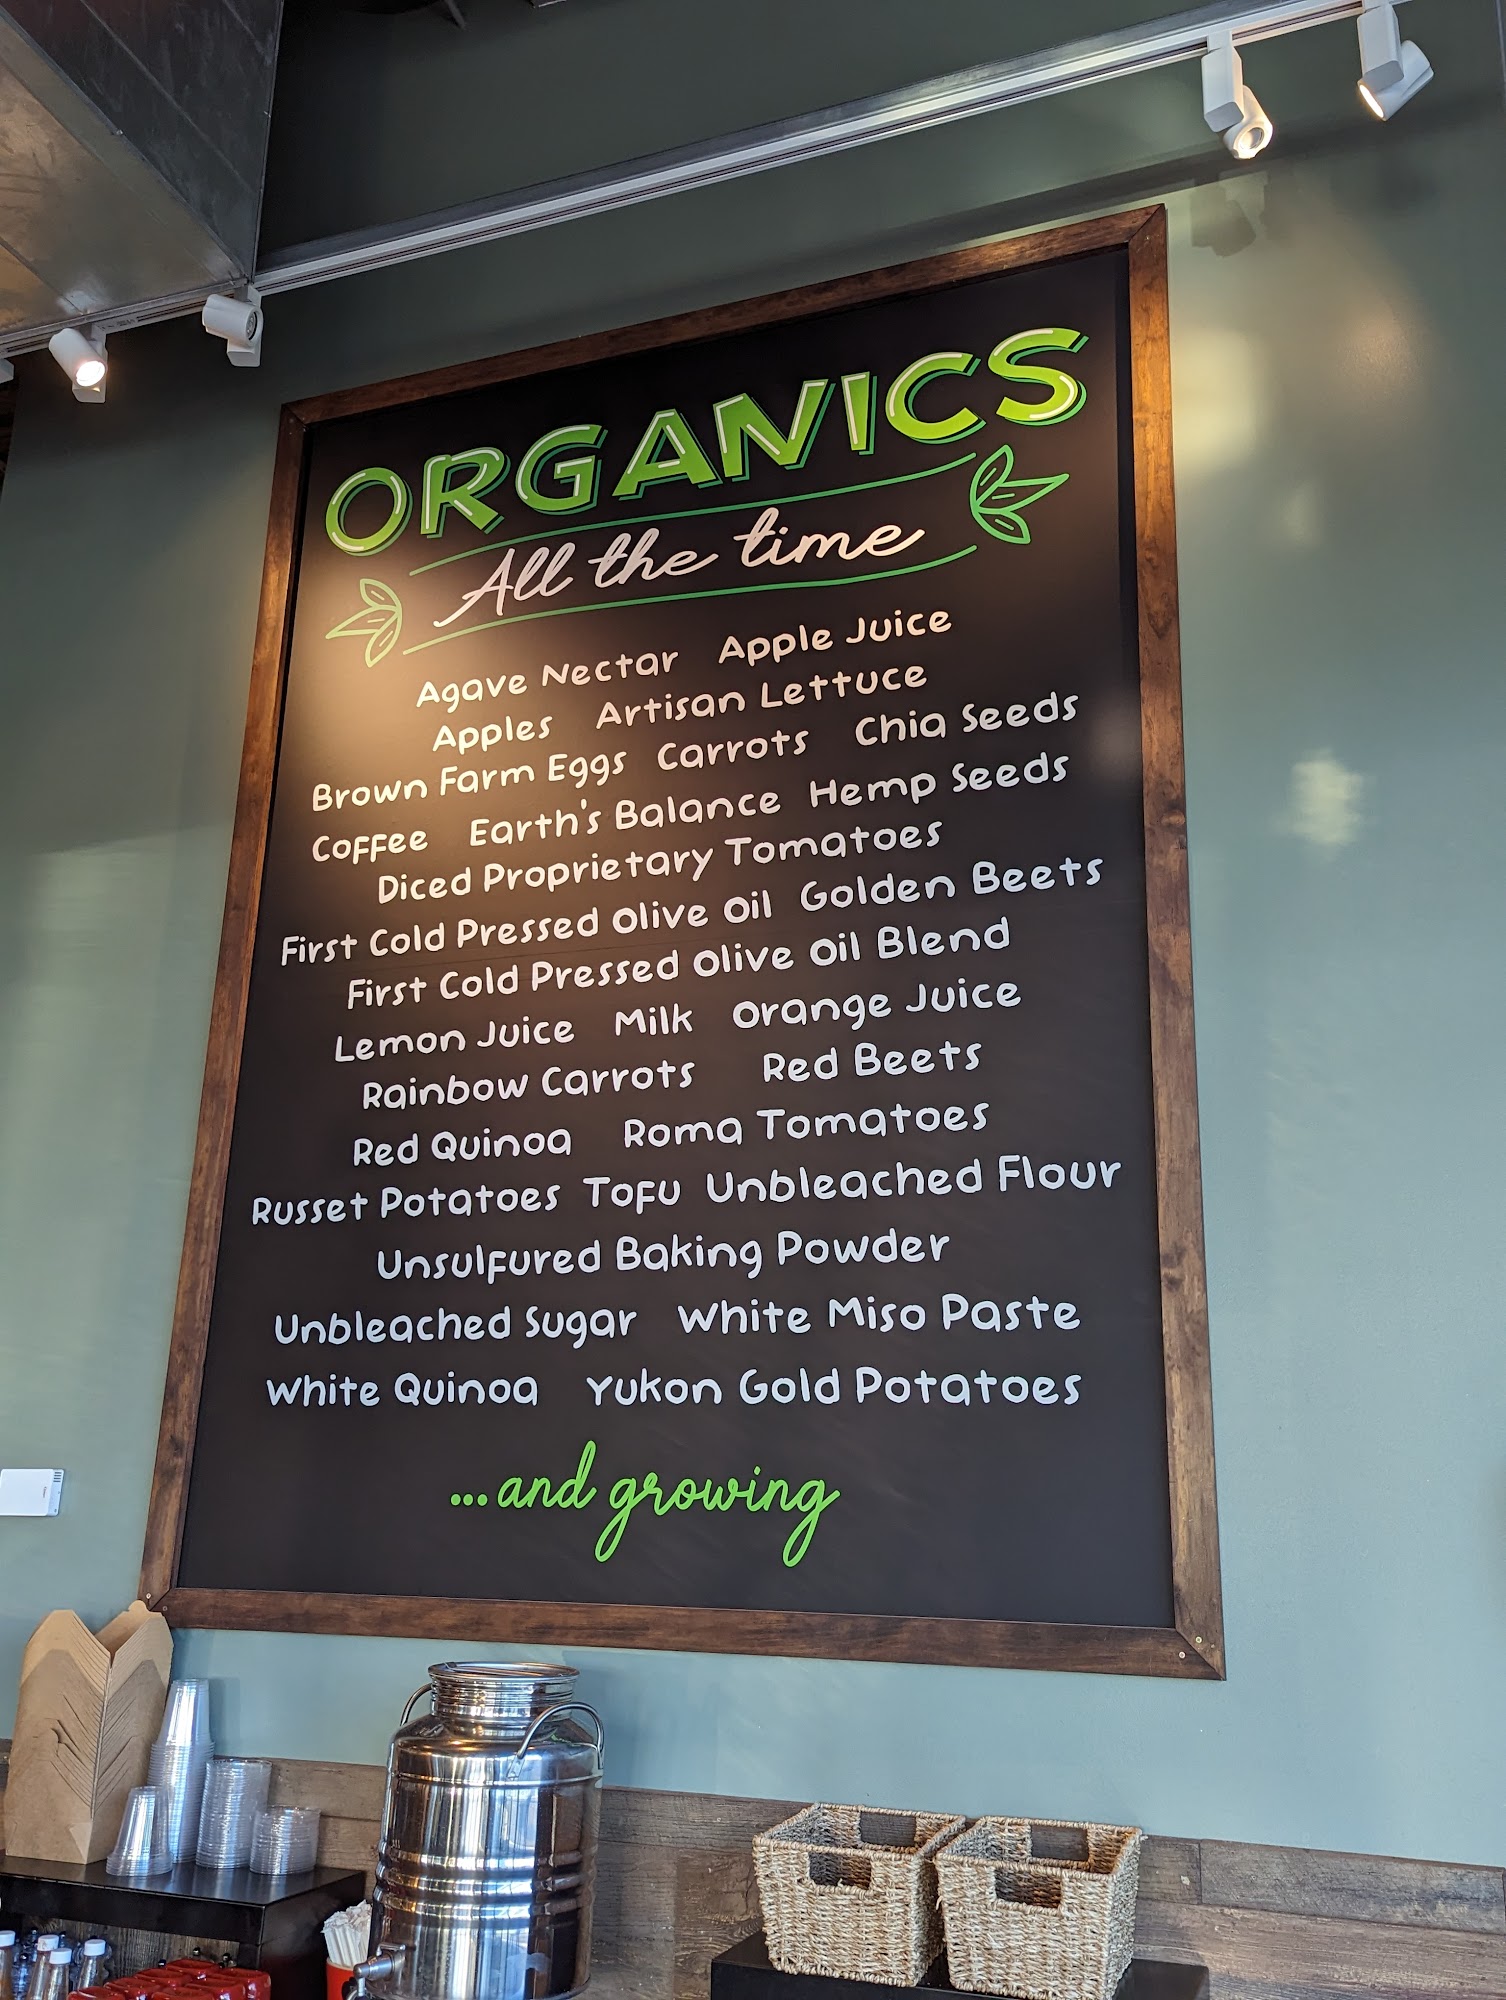 ORGANICS
All the time
Agave Nectar Apple Juice
Apples Artisan Lettuce
Brown Farm Eggs Carrots Chia Seeds
Coffee Earth's Balance Hemp Seeds
Diced Proprietary Tomatoes
First Cold Pressed Olive Oil Golden Beets
First Cold Pressed Olive Oil Blend
Lemon Juice Milk Orange Juice
Rainbow Carrots Red Beets
Red Quinoa Roma Tomatoes
Russet Potatoes Tofu Unbleached Flour
Unsulfured Baking Powder
Unbleached Sugar White Miso Paste
White Quinoa Yukon Gold Potatoes
...and growing